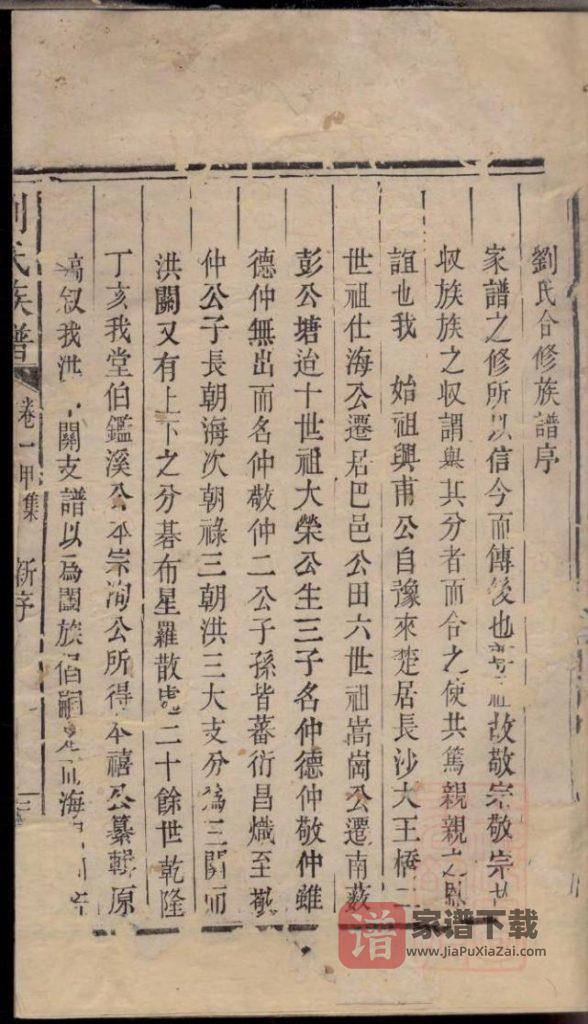 劉氏合修族譜序
家譜之修所以信今而傳後也祖故敬宗敬宗故
収族族之収謂與其分者而合之使共篤親親之
誼也我 始祖興甫公自豫來楚居長沙大王橋二
世祖仕海公遷居巴邑公田六世祖嵩崗公遷南薮
彭公塘迨十世祖大榮公生三子名仲德仲敬仲雖
德仲無出而名仲敬仲二公子孫皆蕃衍昌熾至敬
仲公子長朝海次朝祿三朝洪三大支分爲三關而
洪關又有上下之分碁布星羅散處二十餘世乾隆
丁亥我堂伯鑑溪公本宗洵公所得本禧公纂輯原
稿叙我洪關支譜以爲闔族倡嗣是而海
劉氏族譜 卷一甲集 新序 三
譜 家谱下载
www.JiaPuXiaZai.com